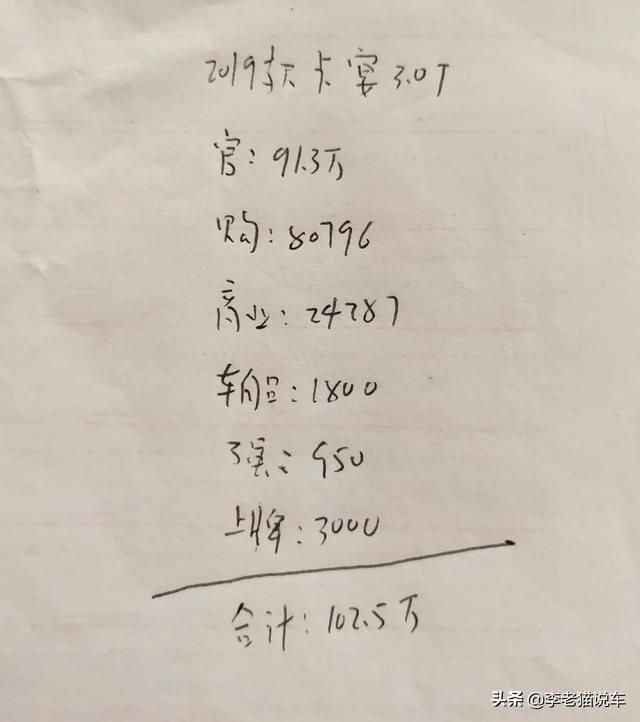 2019款卡宴3.0T
官:91.3万
购:80796
商业:24287
车船:1800
强:950
上牌:3000
合计:102.5万
头条 @李老猫说车